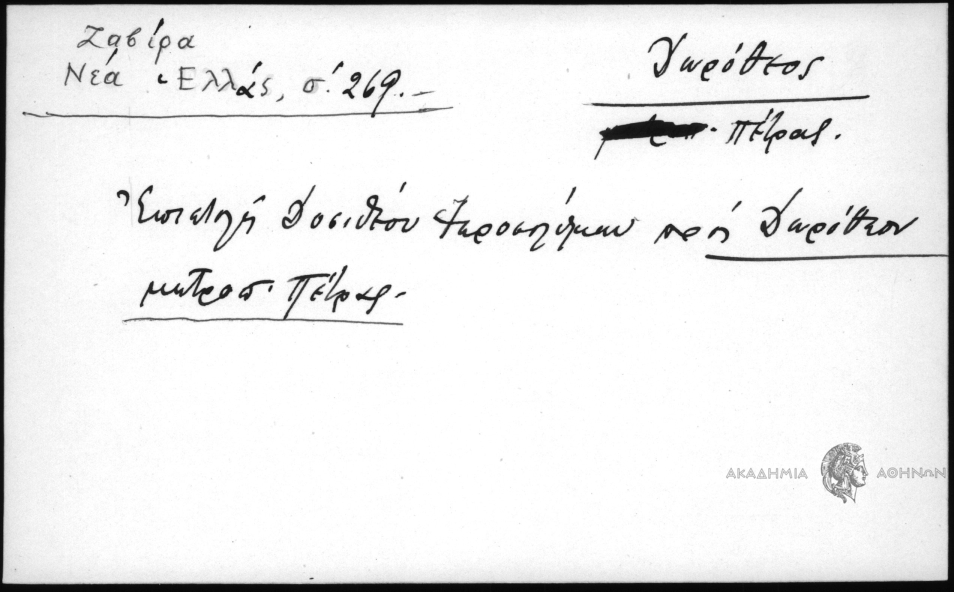 Ζαβίρα
Νέα Ἑλλάς, σ. 269.-
Δωρόθεος
Πέτρας.
Ἐπιστολὴ Δοσιθέου Ἱεροσολύμων πρὸς Δωρόθεον
μητροπ. Πέτρας.-
ΑΚΑΔΗΜΙΑ ΑΘΗΝΩΝ